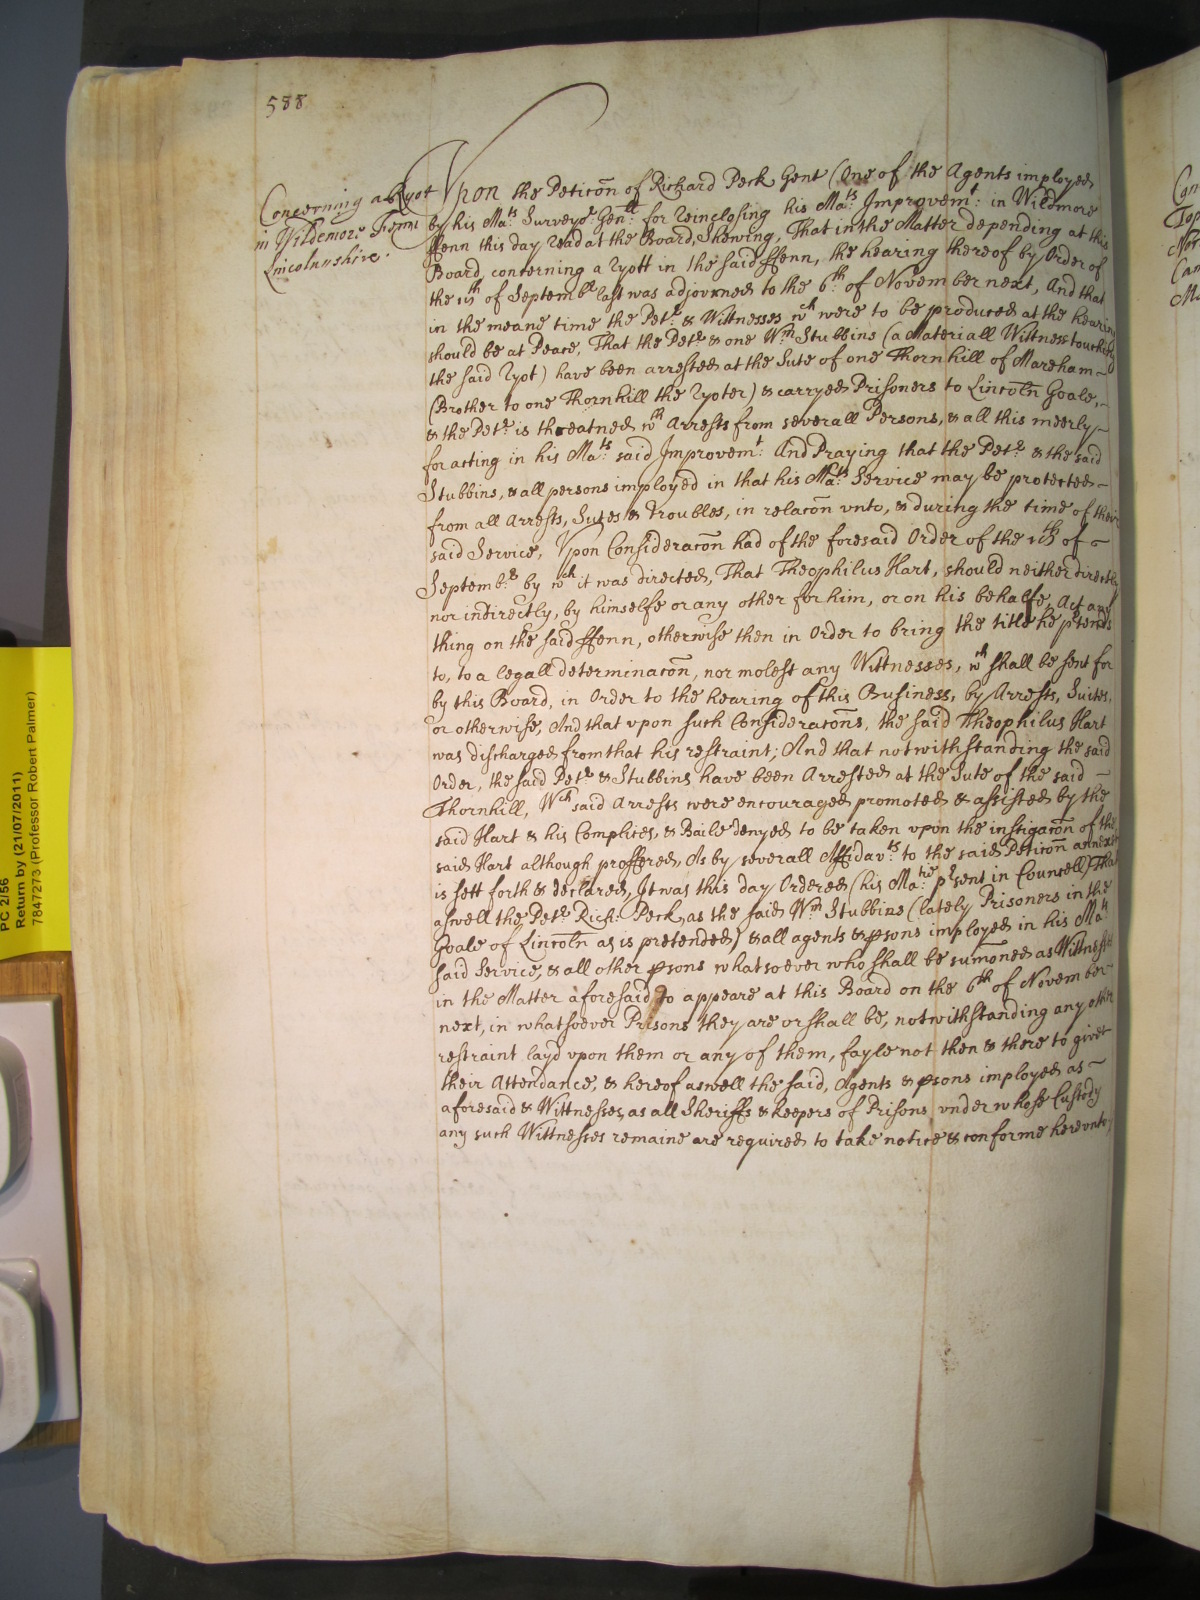 588
Concerning a Ryot
in Wildemore Fenn
Lincolnshire.
Vpon the Peticõn of Richard Peck Gent (One of the Agents imployed
by his Ma:ts Surveyor Gen:ll for reinclosing his Ma:ts Improvem:t in Wildmore
ffenn this day read at the Board, Shewing, That in the Matter depending at this
Board, concerning a ryott in the said ffenn, the hearing thereof by Order of
the 15th of Septembr last was adjourned to the 6:th of November next, And that
in the meane time the Pet:r & Wittnesses wch were to be produced at the hearing
should be at Peace, That the Pet:r & one Wm Stubbins (a Materiall Wittness touching
the said ryot) have been arrested at the Sute of one Thornhill of Mareham
(Brother to one Thornhill the ryoter) & carryed Prisoners to Lincoln Goale,
& the Pet:r is threatned wth Arrests from severall Persons, & all this meerly
for acting in his Ma:ts said Improvem:t And Praying that the Pet:r & the said
Stubbins, & all persons imployed in that his Ma:ts Service may be protected
from all Arrests, Sutes & Troubles, in relacõn vnto, & during the time of their
said Service, Vpon Consideracõn had of the foresaid Order of the 15th of
Septemb:r by wch it was directed, That Theophilus Hart, should neither directly
nor indirectly, by himselfe or any other for him, or on his behalfe, Act any
thing on the said ffenn, otherwise then in Order to bring the title he ptends
to, to a legall determinacõn, nor molest any Wittnesses, wch shall be sent for
by this Board, in Order to the hearing of this Business, by Arrests, Suites,
or otherwise, And that vpon such Consideracõns, the said Theophilus Hart
was discharged from that his restraint; And that notwithstanding the said
Order, the said Pet:r & Stubbins have been Arrested at the Sute of the said
Thornhill, Wch said Arrests were encouraged promoted & assisted by the
said Hart & his Complices, & Baile denyed to be taken vpon the instigacõn of the
said Hart although proffered, As by severall Affidav:ts to the said Peticõn annexed
is sett forth & declared, It was this day Ordered (his Ma:tie psent in Councell) That
aswell the Pet:r Rich: Peck, as the said Wm Stubbins (lately Prisoners in the
Goale of Lincoln as is pretended) & all agents & psons imployed in his Ma:ts
said Service, & all other psons whatsoever who shall be sumoned as Wittnesses
in the Matter aforesaid to appeare at this Board on the 6th of November
next, in whatsoever Prisons they are or shall be, notwithstanding any other
restraint layd vpon them or any of them, fayle not then & there to give
their Attendance, & hereof aswell the said, Agents & psons imployed as
aforesaid & Wittnesses, as all Sheriffs & keepers of Prisons vnder whose Custody
any such Wittnesses remaine are required to take notice & conforme herevnto,
PC 2/56
Return by (21/07/2011)
7847273 (Professor Robert Palmer)